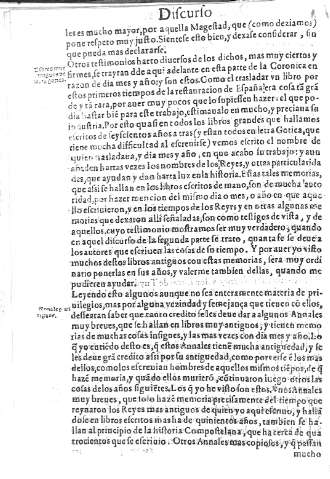 Discurso
les es mucho mayor, por aquella Magestad, que (como deziamos)
pone respeto muy justo. Sientese esto bien, y dexase considerar, sin
que pueda mas declararse.
Otros testimonios harto diuersos de los dichos, mas muy ciertos y
firmes, se traran dde aqui adelante en esta parte de la Coronica en
razon de dia mes y años, y son estos. Como el trasladar vn libro por
estos primeros tiempos de la restauracion de España, era cosa tã grã
de y tã rara, por auer muy pocos que lo supiessen hazer: el que po-
dia bastar biẽ para este trabajo, estimaualo en mucho, y preciaua su
industria. Por esto quasi en todos los libros grandes que hallamos
escritos de seyscientos años a tras (y estan todos en letra Gotica, que
tiene mucha difficultad al escreuirse) vemos escrito el nombre de
quien trasladaua, y dia mes y año, en que acabo su trabajo: y aun
añaden hartas vezes los nombres de los Reyes, y otras particularida
des, que ayudan y dan harta luz en la historia. Estas tales memorias,
que assi se hallan en los libros escritos de mano, son de mucha auto
ridad, por hazer mencion del mismo dia o mes, o año en que aque
llo escriuieron, y en los tiempos de los Reyes y en otras algunas me
morias que dexaron alli señaladas, son como testigos de vista, y de
aquellos, cuyo testimonio mostramos ser muy verdadero; quando
en aquel discurso de la segunda parte se trato, quanta fe se deue a
los autores que escriuen las cosas de su tiempo. Y por auer yo visto
muchos destos libros antiguos con estas memorias, sera muy ordi
nario ponerlas en sus años, y valerme tambien dellas, quando me
pudieren ayudar.
Leyendo esto algunos aunque no sea enteramente materia de pri-
uilegios, mas por alguna vezindad y semejança que tienen cõ ellos,
dessearan saber que tanto credito se les deue dar a algunos Annales
muy breues, que se hallan en libros muy antiguos; y tienen memo
rias de muchas cosas insignes, y las mas vezes con dia mes y año. Lo
q̃ yo entiẽdo desto es, q̃ estos Annales tienẽ mucha antiguedad, y se
les deue grã credito assi por su antiguedad, como porque si ẽ los mas
dellos, como los escreuian hombres de aquellos mismos tiẽpos, de q̃
hazẽ memoria, y quãdo ellos murierõ, cõtinuaron luego otros las
cosas de los años siguiẽtes. Les q̃ yo he visto son estos. Vnos Annales
muy breues, que solo hazẽ memoria precisamente del tiempo que
reynaron los Reyes mas antiguos de quien yo aqui escriuo, y hallã
dose en libros escritos mas ha de quinientos años, tambien se ha-
llan al principio de la historia Compostelana, que ha cerca de qua
trocientos que se escriuio. Otros Annales mas copiosos, y q̃ passan
mucho